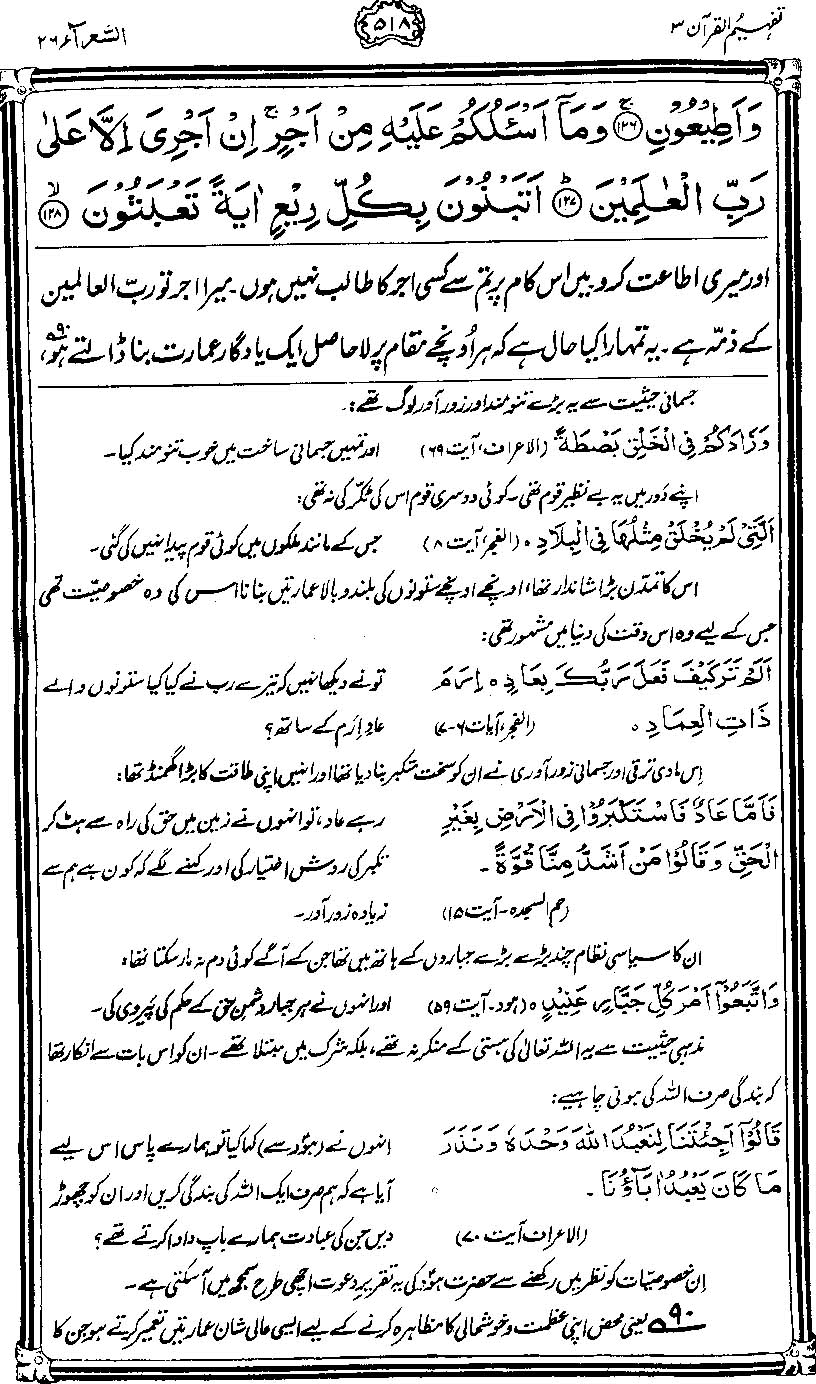 تفہیم القرآن ۳
۵۱۸
الشعرآء ۲۶
وَاَطِيْعُوْنِ ۚ﴿۱۲۶﴾ وَمَآ اَسْـَٔلُكُمْ عَلَيْهِ مِنْ اَجْرٍ ۚ اِنْ اَجْرِىَ اِلَّا عَلٰى
رَبِّ الْعٰلَمِيْنَ ؕ﴿۱۲۷﴾ اَتَبْنُوْنَ بِكُلِّ رِيْعٍ اٰيَةً تَعْبَثُوْنَ ۙ﴿۱۲۸﴾
اور میری اطاعت کرو۔ میں اس کام پر تم سے کسی اجر کا طالب نہیں ہوں۔ میرا اجر تو ربّ العالمین
کے ذمّہ ہے۔ یہ تمہارا کیا حال ہے کہ ہر اُونچے مقام پر لاحاصل ایک یادگار عمارت بنا ڈالتے ہو،۹۰
جسمانی حیثیت سے یہ بڑے تنومند اور زور آور لوگ تھے:۔
وَزَادَكُمْ فِى الْخَلْقِ بَصْطَةً (الاعراف، آیت ۶۹) اور تمہیں جسمانی ساخت میں خوب تنومند کیا۔
اپنے دَور میں یہ بے نظیر قوم تھی۔ کوئی دوسری قوم اس کی ٹکّر کی نہ تھی:
اَلَّتِىْ لَمْ يُخْلَقْ مِثْلُهَا فِى الْبِلَادِ ہ (الفجر، آیت ۸) جس کے مانند ملکوں میں کوئی قوم پیدا نہیں کی گئی۔
اس کا تمدن بڑا شاندار تھا، اونچے اونچے ستونوں کی بلند و بالا عمارتیں بنانا اس کی وہ خصوصیت تھی
جس کے لیے وہ اس وقت کی دنیا میں مشہور تھی:
اَلَمْ تَرَ كَيْفَ فَعَلَ رَبُّكَ بِعَادٍ ہ اِرَمَ تونے دیکھا نہیں کہ تیرے رب نے کیا کیا ستونوں والے
ذَاتِ الْعِمَادِ ہ (الفجر، آیات ۶-۷) عادِ اِرَم کے ساتھ؟
اِس مادی ترقی اور جسمانی زور آوری نے ان کو سخت متکبر بنا دیا تھا اور انہیں اپنی طاقت کا بڑا گھمنڈ تھا:
فَاَمَّا عَادٌ فَاسْتَكْبَرُوْا فِى الْاَرْضِ بِغَيْرِ رہے عاد، تو انہوں نے زمین میں حق کی راہ سے ہٹ کر
الْحَقِّ وَقَالُوْا مَنْ اَشَدُّ مِنَّا قُوَّةً۔ تکبر کی روش اختیار کی اور کہنے لگے کہ کون ہے ہم سے
(حم السجدہ۔ آیت ۱۵) زیادہ زور آور۔
ان کا سیاسی نظام چند بڑے بڑے جباروں کے ہاتھ میں تھا جن کے آگے کوئی دم نہ مار سکتا تھا:
وَاتَّبَعُوْٓا اَمْرَ كُلِّ جَبَّارٍ عَنِيْدٍ ہ (ہود۔ آیت ۵۹) اور انہوں نے ہر جبار دشمنِ حق کے حکم کی پیروی کی۔
مذہبی حیثیت سے یہ اللہ تعالیٰ کی ہستی کے منکر نہ تھے، بلکہ شرک میں مبتلا تھے۔ ان کو اس بات سے انکار تھا
کہ بندگی صرف اللہ کی ہونی چاہیے:
قَالُوْٓا اَجِئْتَنَا لِنَعْبُدَ اللّٰهَ وَحْدَهٗ وَنَذَرَ انہوں نے (ہُودؑ سے) کہا کیا تو ہمارے پاس اس لیے
مَا كَانَ يَعْبُدُ اٰبَآؤُنَا۔ آیا ہے کہ ہم صرف ایک اللہ کی بندگی کریں اور ان کو چھوڑ
(الاعراف آیت ۷۰) دیں جن کی عبادت ہمارے باپ دادا کرتے تھے؟
اِن خصوصیات کو نظر میں رکھنے سے حضرت ہُودؑ کی یہ تقریرِ دعوت اچھی طرح سمجھ میں آسکتی ہے۔
۹۰ یعنی محض اپنی عظمت و خوشحالی کا مظاہرہ کرنے کے لیے ایسی عالی شان عمارتیں تعمیر کرتے ہو جن کا